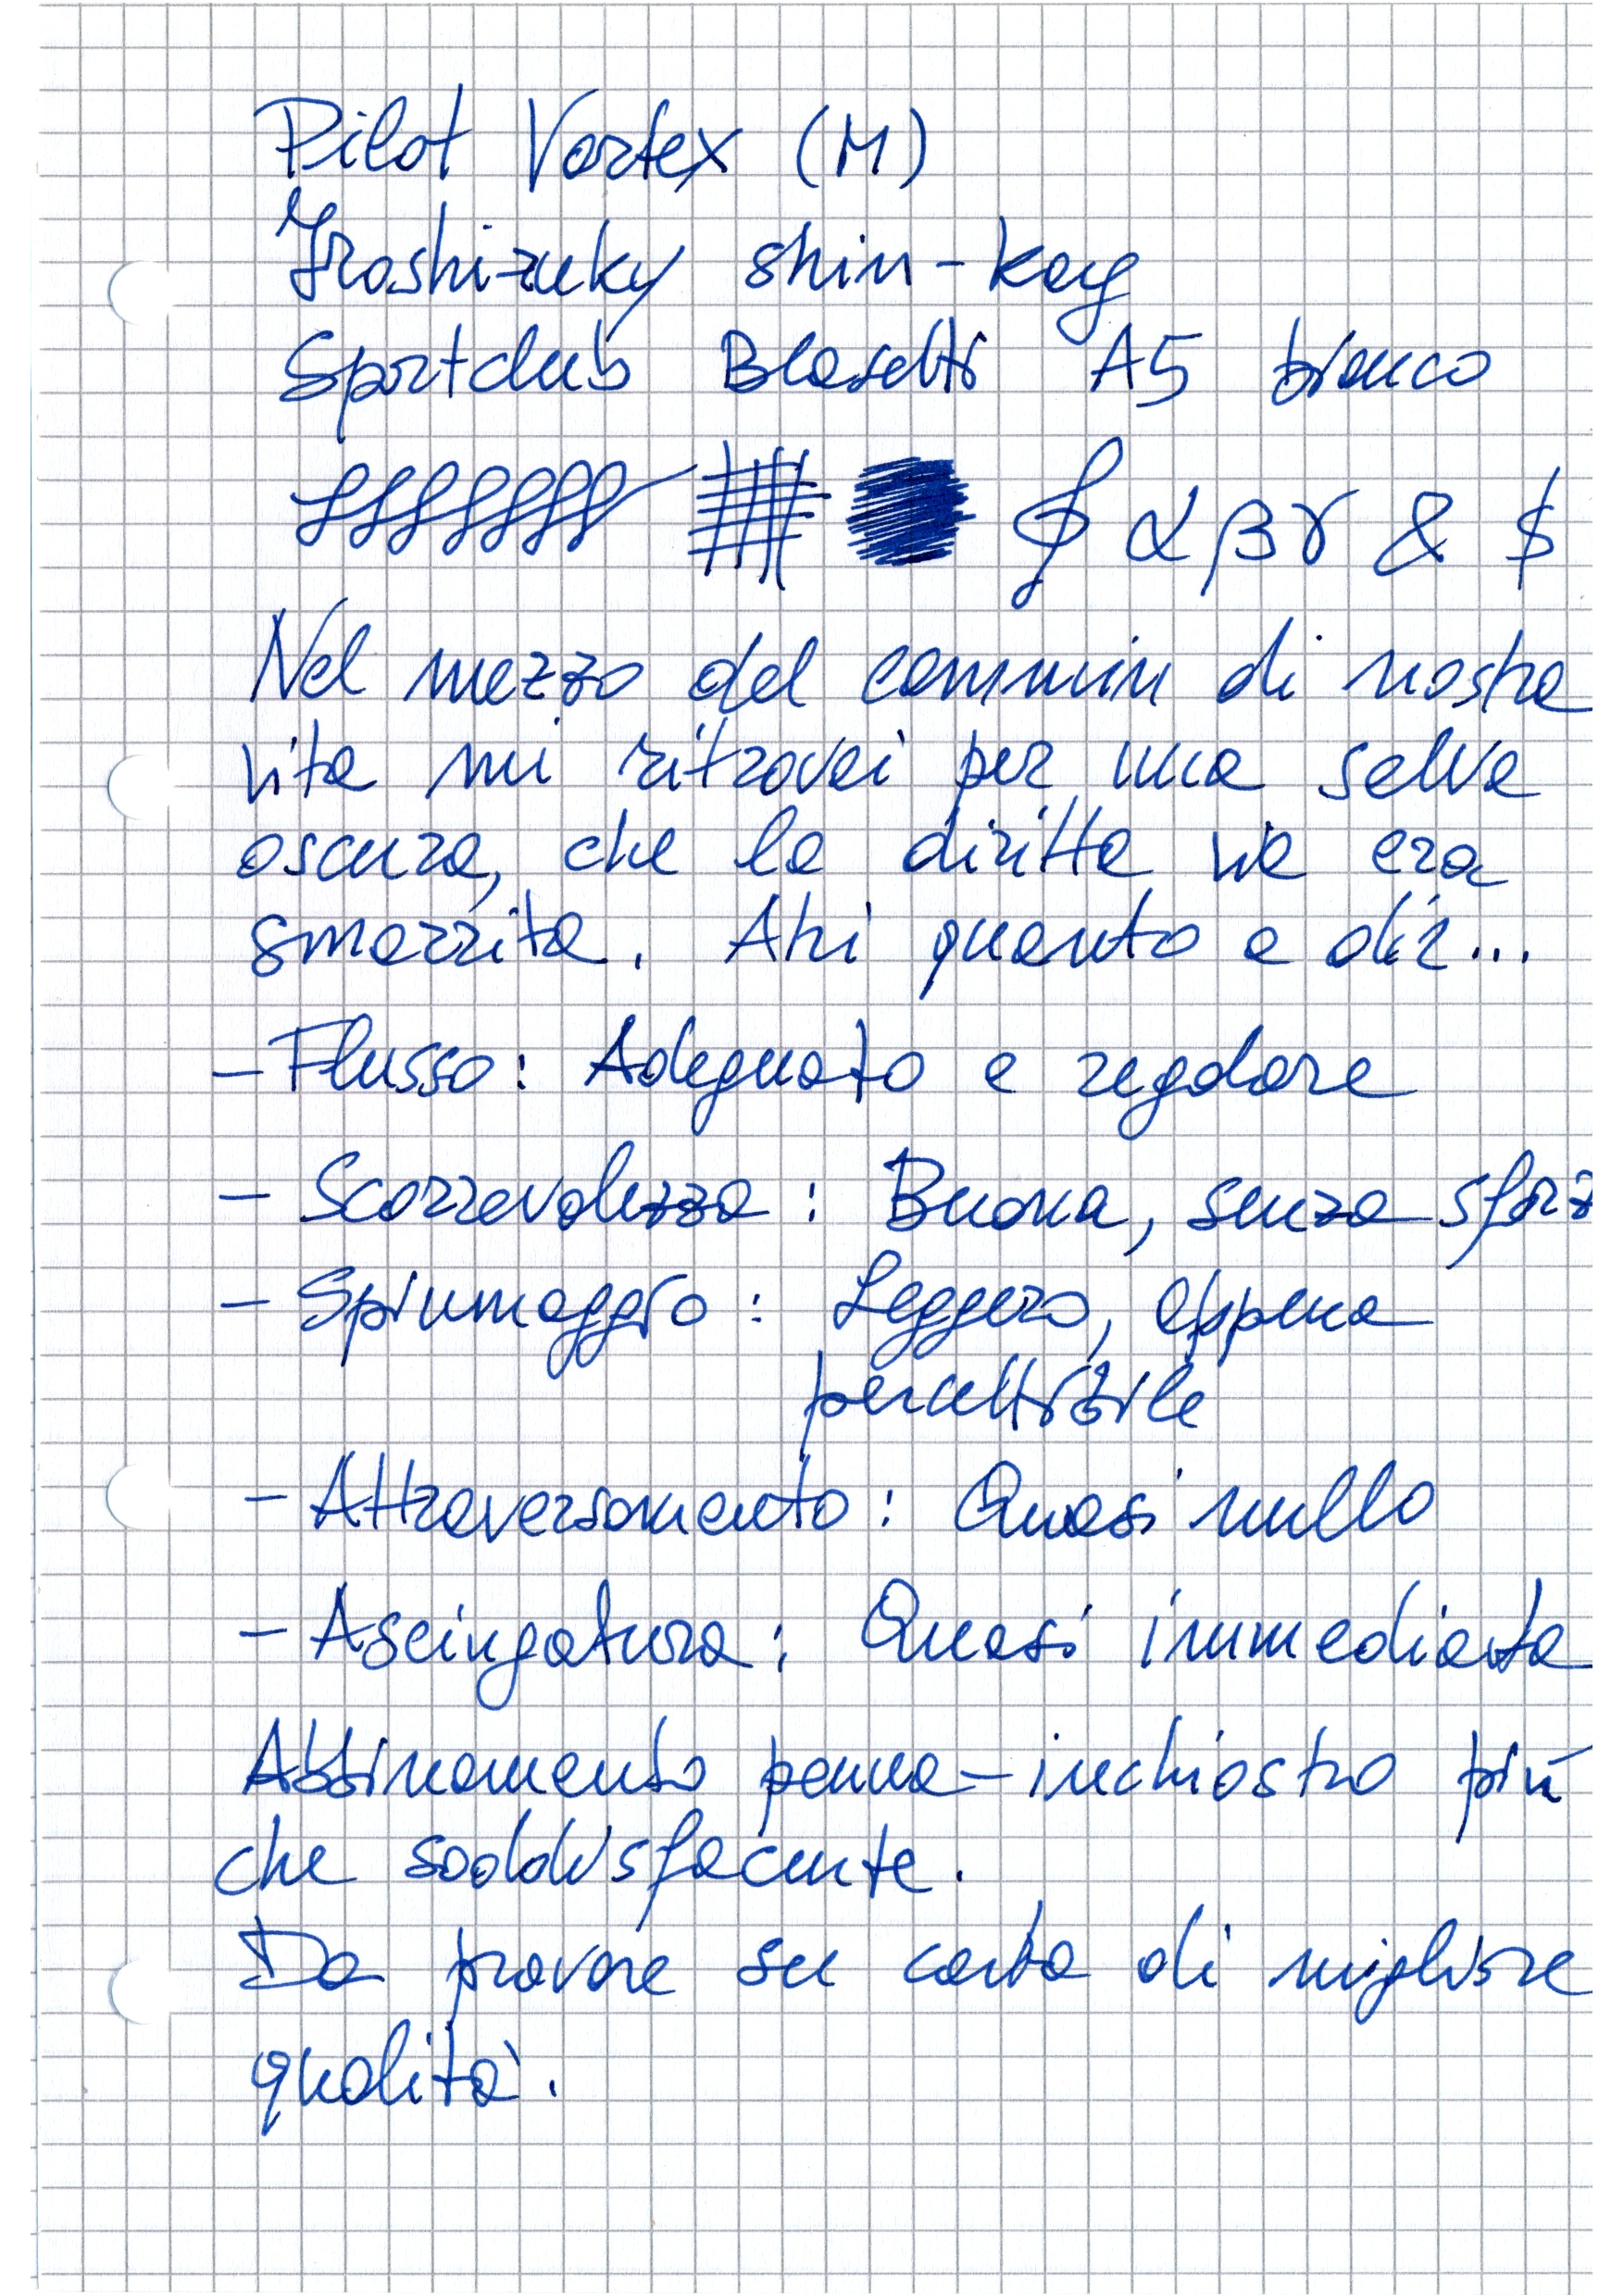 Pilot Vortex (M)
Iroshizuky shin-kay
Sportclub Blasetti A5 bianco
α β γ & $
Nel mezzo del cammin di nostra
vita mi ritrovai per una selva
oscura, che la diritta via era
smarrita. Ahi quanto a dir...
- Flusso: Adeguato e regolare
- Scorrevolezza: Buona, senza sforz
- Spiumaggio: Leggero, appena
percettibile
- Attraversamento: Quasi nullo
- Asciugatura: Quasi immediata
Abbinamento penna-inchiostro più
che soddisfacente.
Da provare su carta di migliore
qualità.